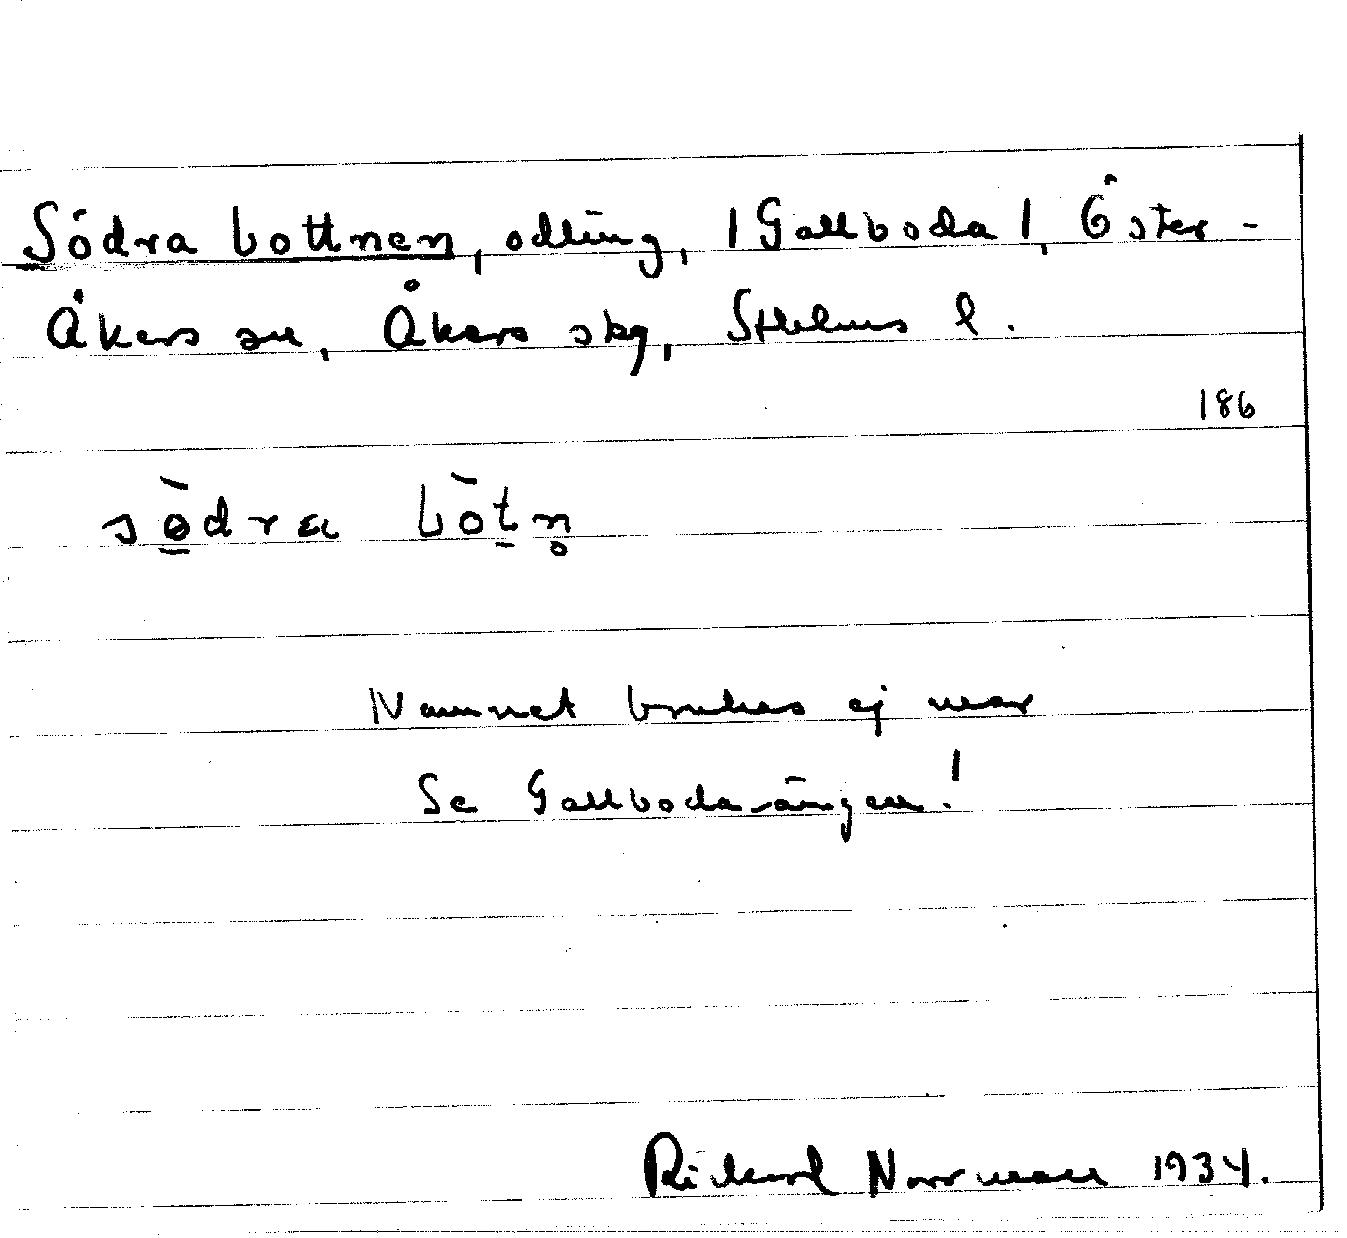 Södra bottnen, odling, | Gallboda |, Öster-
Åkers sn, Åkers skg, Sthlms l.
186
sö̀dra bòtn̥
Namnet brukas ej mer
Se Gallboda-ängen!
Rickard Norrman 1934.